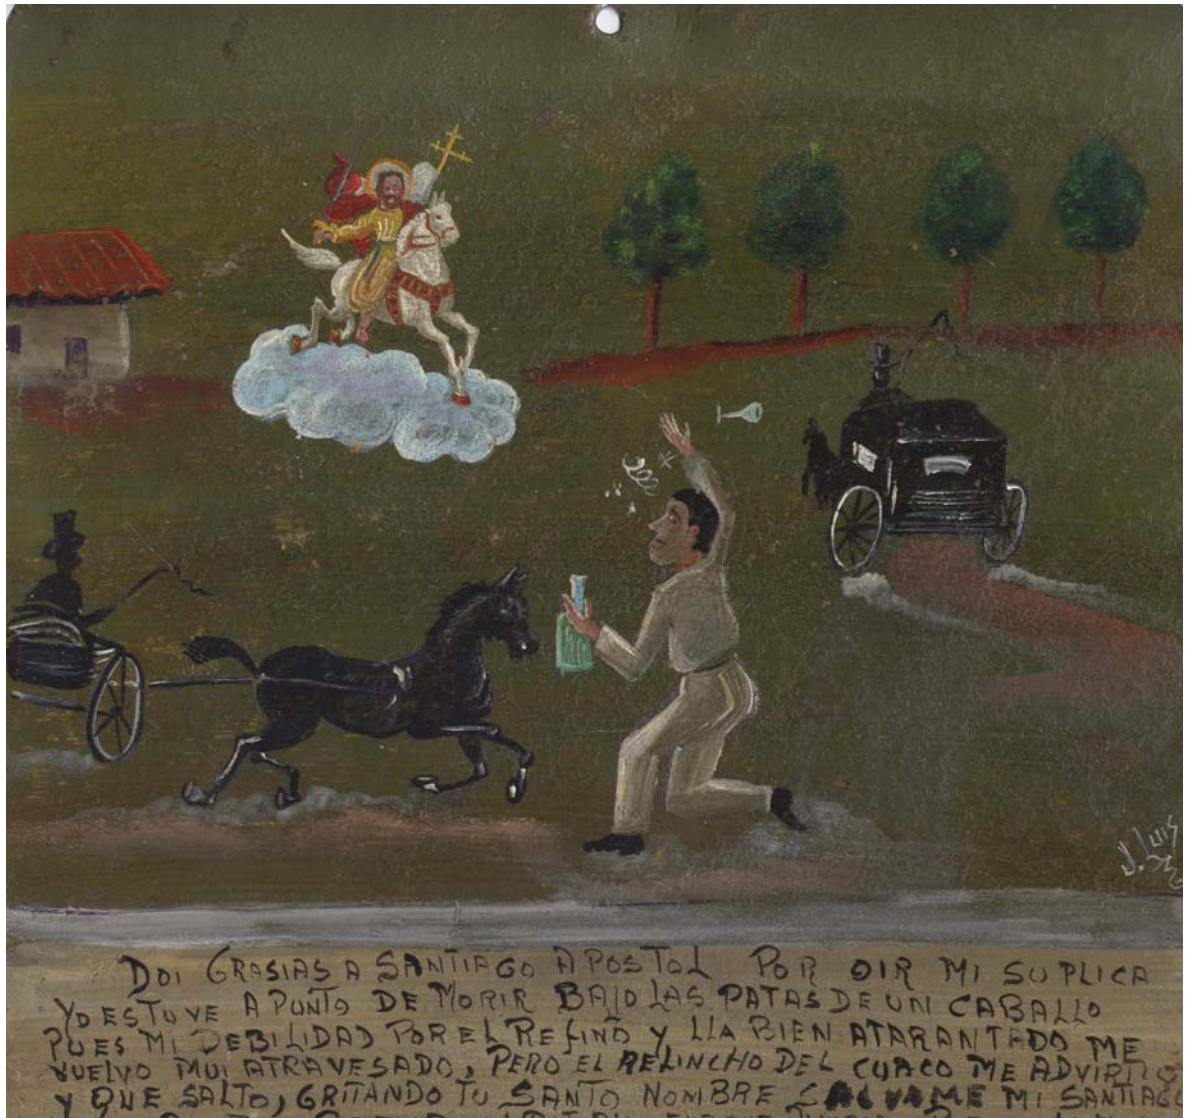 J. Luis
DOI GRASIAS A SANTIAGO APOSTOL POR OIR MI SUPLICA
YO ESTUVE A PUNTO DE MORIR BAJO LAS PATAS DE UN CABALLO
PUES MI DEBILIDAD POR EL REFINO Y LLA BIEN ATARANTADO ME
VUELVO MUI ATRAVESADO, PERO EL RELINCHO DEL CUACO ME ADVIRTIO
Y QUE SALTO, GRITANDO TU SANTO NOMBRE SALVAME MI SANTIAGO